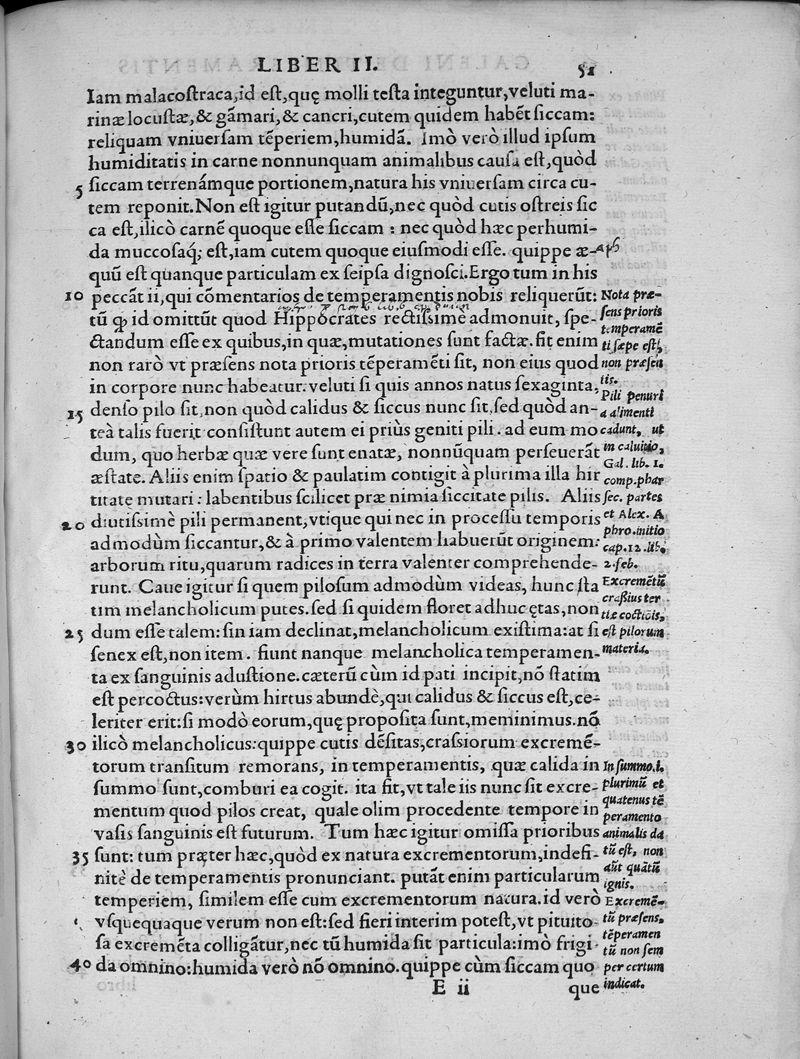 LIBER II. 51
Iam malacoſtraca,id eſt,quę molli teſta integuntur,veluti ma-
rinæ locuſtæ,& gãmari,& cancri,cutem quidem habẽt ſiccam:
reliquam vniuerſam tẽperiem,humidã. Imò verò illud ipſum
humiditatis in carne nonnunquam animalibus cauſa eſt,quòd
5 ſiccam terrenámque portionem,natura his vniuerſam circa cu-
tem reponit.Non eſt igitur putandũ,nec quòd cutis oſtreis ſic
ca eſt,ilicò carnẽ quoque eſſe ſiccam : nec quòd hæc perhumi-
da muccoſaq; eſt,iam cutem quoque eiuſmodi eſſe. quippe æ-
quũ eſt quanque particulam ex ſeipſa dignoſci.Ergo tum in his
10 peccãt ii,qui cõmentarios de temperamentis nobis reliquerũt:
tũ ꝙ id omittũt quod Hippocrates rectiſsimè admonuit, ſpe-
ctandum eſſe ex quibus,in quæ,mutationes ſunt factæ. fit enim
non rarò vt præſens nota prioris tẽperamẽti ſit, non eius quod
in corpore nunc habeatur: veluti ſi quis annos natus ſexaginta,
15 denſo pilo ſit,non quòd calidus & ſiccus nunc ſit,ſed quòd an-
teà talis fuerit conſiſtunt autem ei priùs geniti pili. ad eum mo
dum, quo herbæ quæ vere ſunt enatæ, nonnũquam perſeuerãt
æſtate. Aliis enim ſpatio & paulatim contigit à plurima illa hir
titate mutari : labentibus ſcilicet præ nimia ſiccitate pilis. Aliis
20 diutiſsimè pili permanent,vtique qui nec in proceſſu temporis
admodùm ſiccantur,& à primo valentem habuerũt originem:
arborum ritu,quarum radices in terra valenter comprehende-
runt. Caue igitur ſi quem piloſum admodùm videas, hunc ſta
tim melancholicum putes.ſed ſi quidem floret adhuc ętas,non
25 dum eſſe talem: ſin iam declinat,melancholicum exiſtima:at ſi
ſenex eſt,non item. fiunt nanque melancholica temperamen-
ta ex ſanguinis aduſtione.cæterũ cùm id pati incipit,nõ ſtatim
eſt percoctus:verùm hirtus abundè,qui calidus & ſiccus eſt,ce-
leriter erit:ſi modò eorum,quę propoſita ſunt,meminimus.nõ
30 ilicò melancholicus:quippe cutis dẽſitas,craſsiorum excremẽ-
torum tranſitum remorans, in temperamentis, quæ calida in
ſummo ſunt,comburi ea cogit. ita fit,vt tale iis nunc ſit excre-
mentum quod pilos creat, quale olim procedente tempore in
vaſis ſanguinis eſt futurum. Tum hæc igitur omiſſa prioribus
35 ſunt: tum pręter hæc,quòd ex natura excrementorum,indefi-
nitè de temperamentis pronunciant. putãt enim particularum
temperiem, ſimilem eſſe cum excrementorum natura.id verò
vſquequaque verum non eſt:ſed fieri interim poteſt,vt pituito-
ſa excremẽta colligãtur,nec tũ humida ſit particula:imò frigi
40 da omnino:humida verò nõ omnino.quippe cùm ſiccam quo
E ii que
Nota præ-
ſens prioris
temperamẽ
ti ſæpe eſt,
non præſen
tis.
Pili penuri
a alimenti
cadunt, ut
in caluitio,
Gal. lib. 1.
comp.phar
ſec. partes
et Alex. A
phro.initio
cap.12.lib.
2.feb.
Excremẽtũ
craßius ter
tiæ coctiõis,
eſt pilorum
materia.
In ſummo.i.
plurimũ et
quatenus tẽ
peramento
animalis da
tũ eſt, non
aũt quãtũ
ignis.
Excremẽ-
tũ præſens,
tẽperamen
tũ non ſem
per certum
indicat.